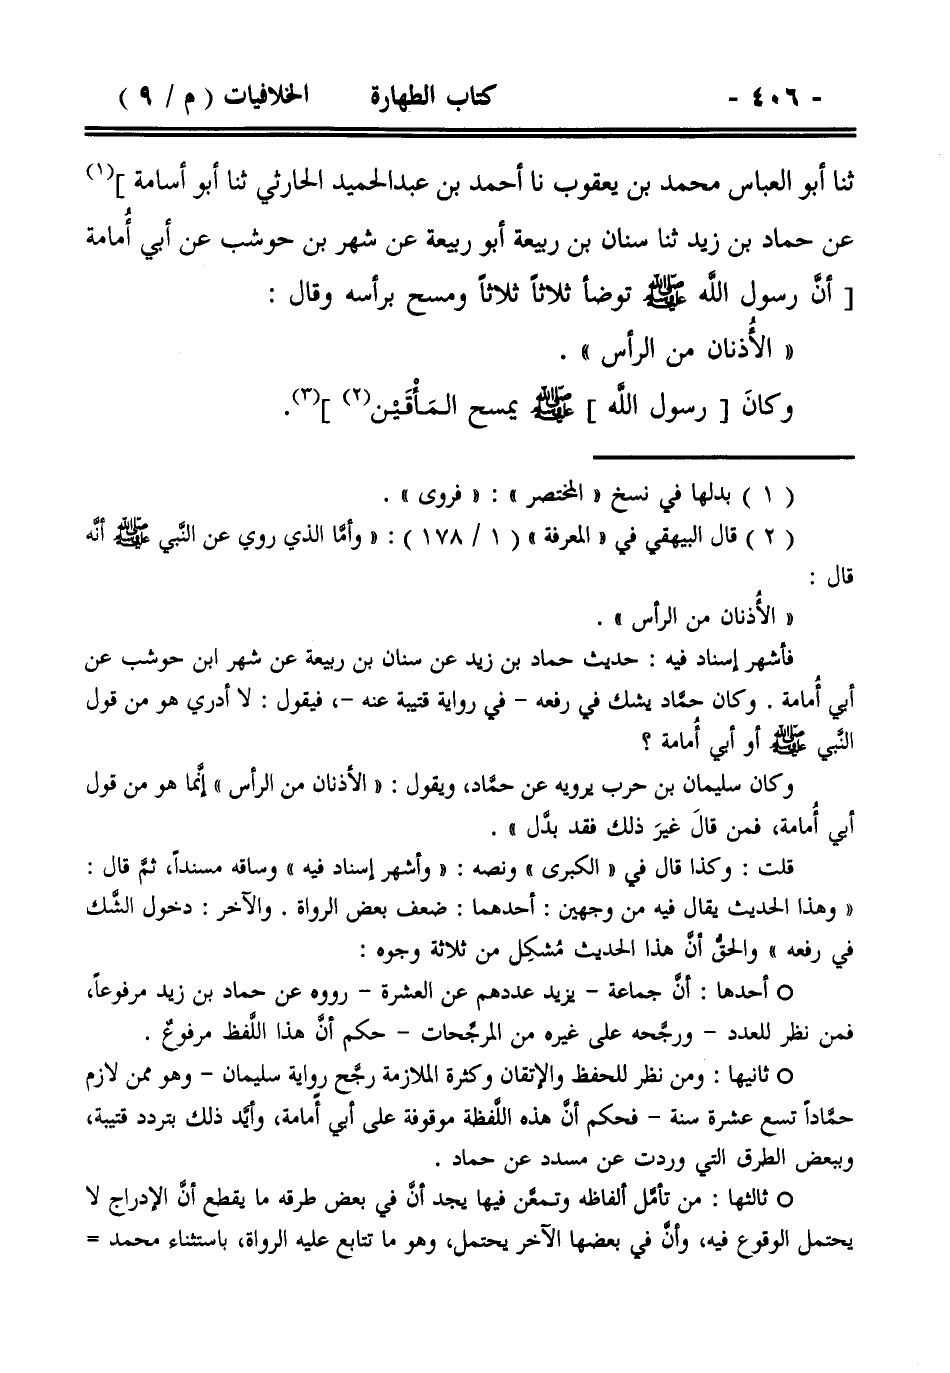 - ٤٠٦ - كتاب الطهارة الخلافيات ( م / ٩ )
ثنا أبو العباس محمد بن يعقوب نا أحمد بن عبدالحميد الحارثي ثنا أبو أسامة ](١)
عن حماد بن زيد ثنا سنان بن ربيعة أبو ربيعة عن شهر بن حوشب عن أبي أُمامة
[ أنَّ رسول اللَّه ﷺ توضأ ثلاثاً ثلاثاً ومسح برأسه وقال :
« الأُذنان من الرأس » .
وكانَ [ رسول اللَّه ] ﷺ يمسح المَأْقَيْن(٢) ](٣).
( ١ ) بدلها في نسخ « المختصر » : « فروى » .
( ٢ ) قال البيهقي في « المعرفة » ( ١ / ١٧٨ ) : « وأمَّا الذي روي عن النَّبي ﷺ أنَّه
قال :
« الأُذنان من الرأس » .
فأشهر إسناد فيه : حديث حماد بن زيد عن سنان بن ربيعة عن شهر ابن حوشب عن
أبي أُمامة . وكان حمَّاد يشك في رفعه - في رواية قتيبة عنه -، فيقول : لا أدري هو من قول
النَّبي ﷺ أو أبي أُمامة ؟
وكان سليمان بن حرب يرويه عن حمَّاد، ويقول : « الأذنان من الرأس » إنَّما هو من قول
أبي أُمامة، فمن قالَ غيرَ ذلك فقد بدَّل » .
قلت : وكذا قال في « الكبرى » ونصه : « وأشهر إسناد فيه » وساقه مسنداً، ثمَّ قال :
« وهذا الحديث يقال فيه من وجهين : أحدهما : ضعف بعض الرواة . والآخر : دخول الشَّك
في رفعه » والحقُّ أنَّ هذا الحديث مُشكِل من ثلاثة وجوه :
○ أحدها : أنَّ جماعة - يزيد عددهم عن العشرة - رووه عن حماد بن زيد مرفوعاً،
فمن نظر للعدد - ورجَّحه على غيره من المرجِّحات - حكم أنَّ هذا اللَّفظ مرفوعٌ .
○ ثانيها : ومن نظر للحفظ والإتقان وكثرة الملازمة رجَّح رواية سليمان - وهو ممن لازم
حمَّاداً تسع عشرة سنة - فحكم أنَّ هذه اللَّفظة موقوفة على أبي أُمامة، وأيَّد ذلك بتردد قتيبة،
وببعض الطرق التي وردت عن مسدد عن حماد .
○ ثالثها : من تأمَّل ألفاظه وتمعَّن فيها يجد أنَّ في بعض طرقه ما يقطع أنَّ الإدراج لا
يحتمل الوقوع فيه، وأنَّ في بعضها الآخر يحتمل، وهو ما تتابع عليه الرواة، باستثناء محمد =